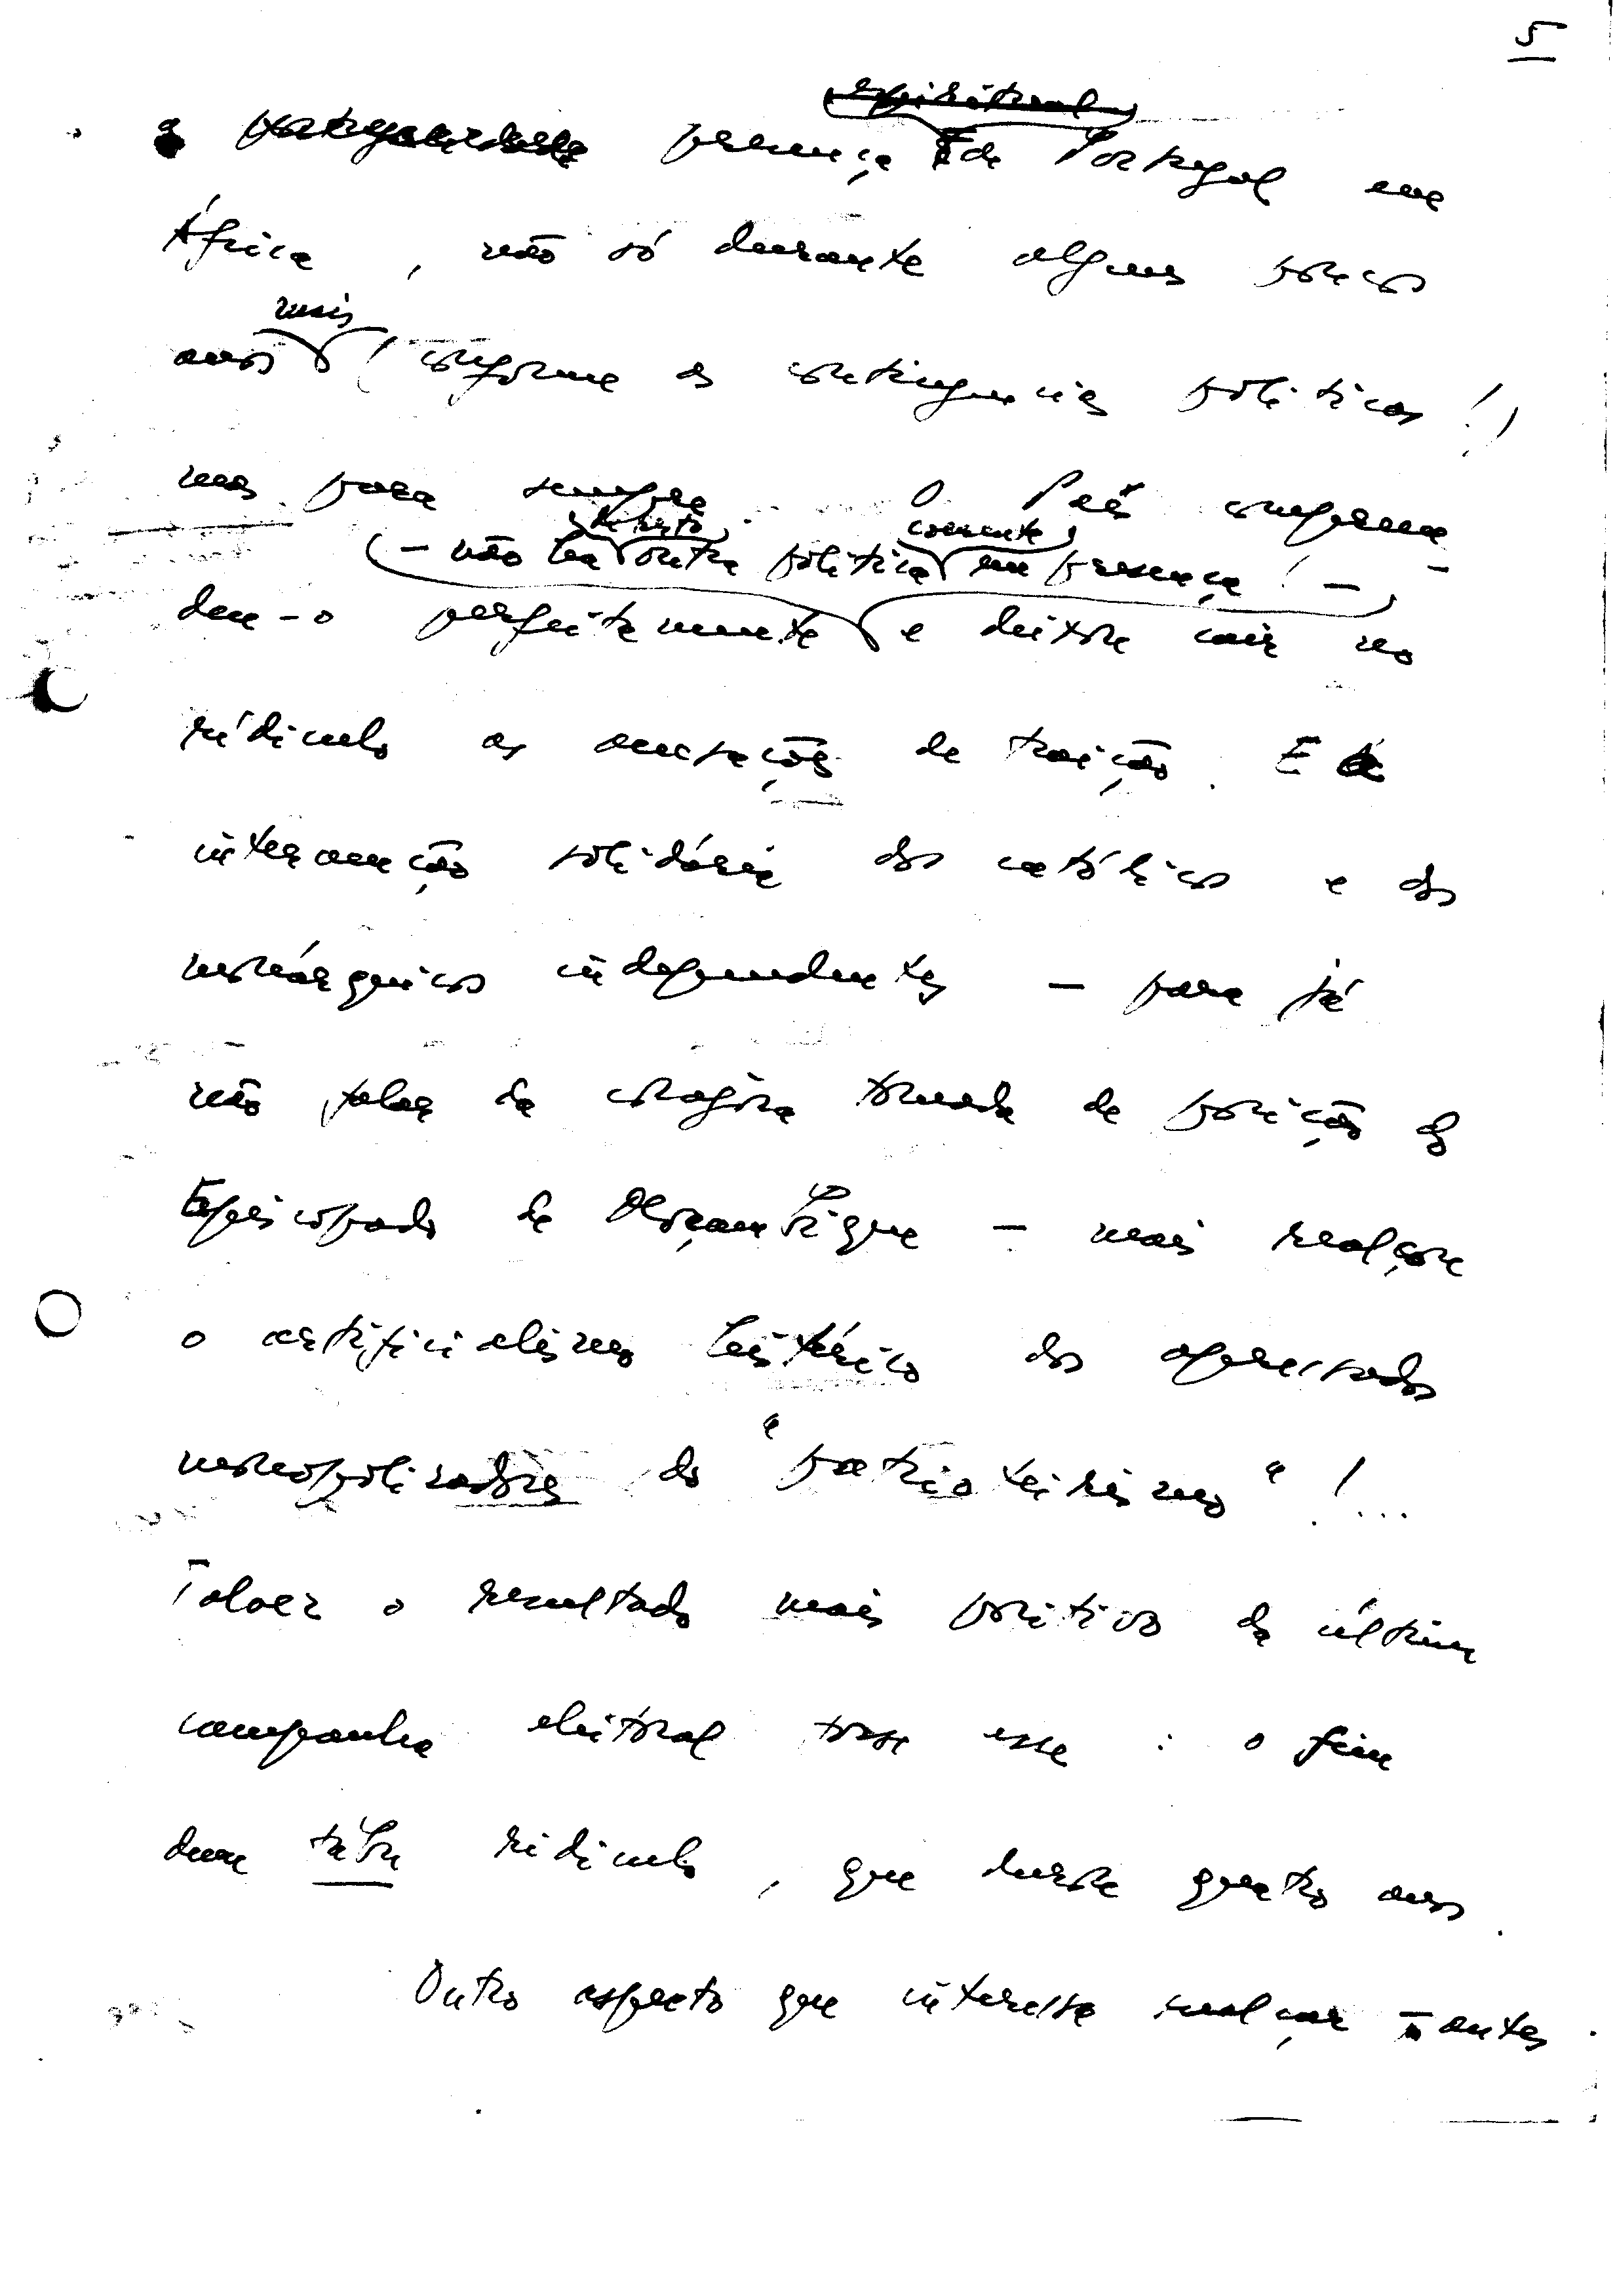 5
a presença de Portugal em
África, não só durante alguns poucos
mais
anos (conforme as contingências políticas!)
mas para sempre. O País compreen-
debate
coerente
– não há outra política em presença! –
deu-o perfeitamente e deitou cair no
rídiculo as acusações de traição. E a
intervenção solidária dos católicos e dos
monárquicos independentes – para já
não falar da corajosa tomada de posição do
Episcopado de Moçambique – mais realçou
o artificialismo histérico dos apressados
monopolizadores do "patrioteirismo"!...
Talvez o resultado mais positivo da última
campanha eleitoral fosse esse: o fim
dum tabu ridiculo, que durou quatro anos.
Outro aspecto que interessa realçar – antes